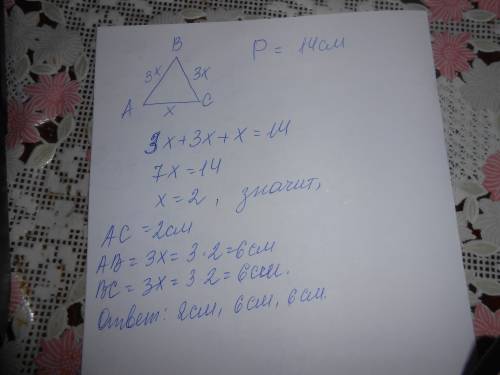 B
P = 14см
3x 3x
A x C
3x+3x+x=14
7x=14
x=2, значит,
AC = 2см
AB = 3x = 3·2=6см
BC = 3x = 3·2=6см.
Ответ: 2см, 6см, 6см.